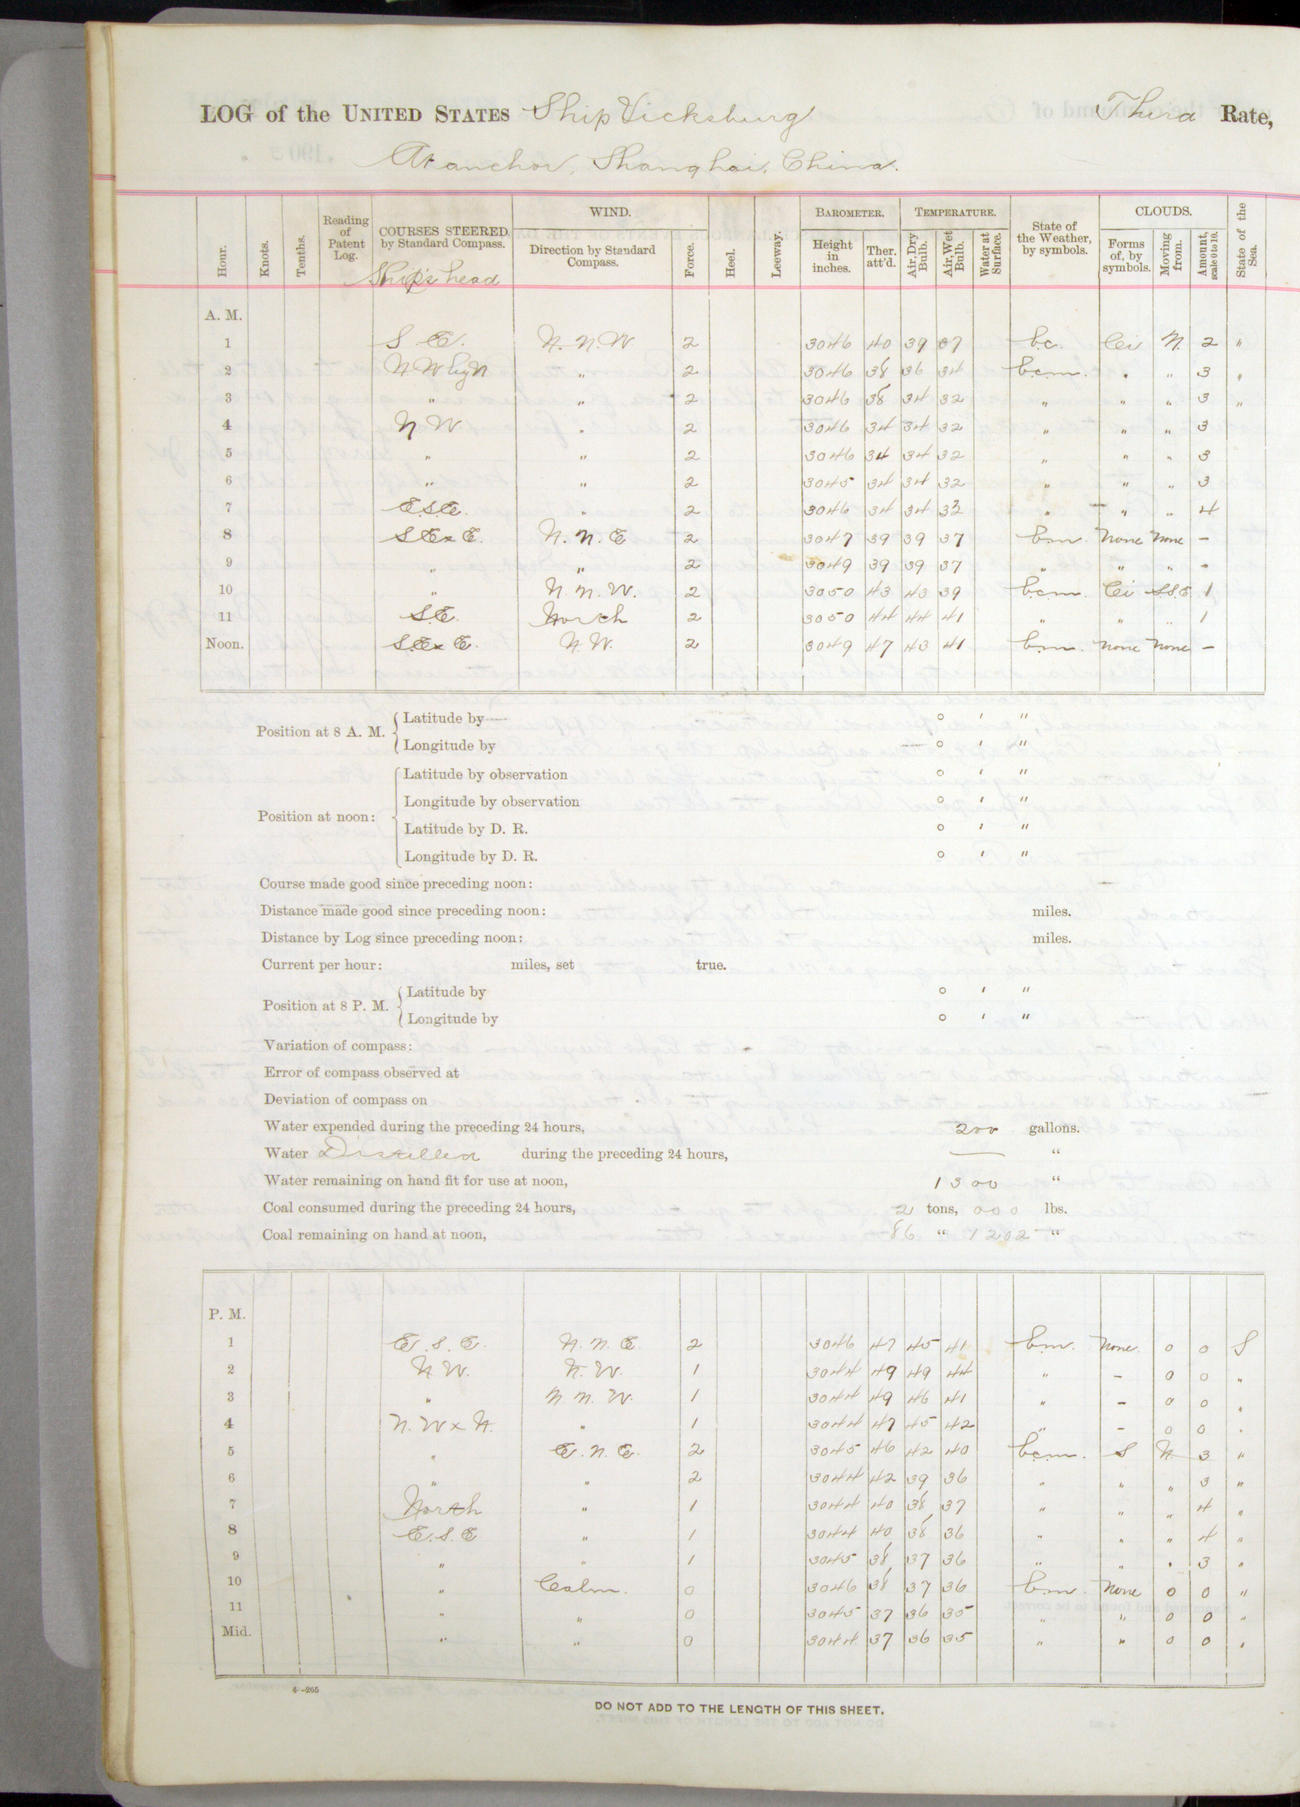 LOG of the UNITED STATES Ship Vicksburg Third Rate,
At anchor, Shanghai, China.
Hour. Knots. Tenths. Reading of Patent Log. COURSES STEERED by Standard Compass. Ship's head WIND. Direction by Standard Compass. Force. Heel. Leeway. BAROMETER. Height in inches. Ther. att'd. TEMPERATURE. Air, Dry Bulb. Air, Wet Bulb. Water at Surface. State of the Weather, by symbols. CLOUDS. Forms of, by symbols. Moving from. Amount, scale 0 to 10. State of the Sea.
A. M.
1 S E. N. N. W 2 3046 40 39 37 b.c. Ci N. 2 "
2 N W by N " 2 3046 38 36 34 b.c.m. " " 3 "
3 " " 2 3046 38 34 32 " " " 3 "
4 N W " 2 3046 34 34 32 " " " 3
5 " " 2 3046 34 34 32 " " " 3
6 " " 2 3045 34 34 32 " " " 3
7 E.S.E. " 2 3046 34 34 32 " " " 4
8 S E x E. N. N. E 2 3047 39 39 37 b.m. None None –
9 " " 2 3049 39 39 37 " " " -
10 " N. N. W. 2 3050 43 43 39 b.c.m. Ci S.S.E 1
11 S.E. North 2 3050 44 44 41 " " " 1
Noon. S.E x E. N. W. 2 3049 47 43 41 b.m. None None –
Position at 8 A. M. Latitude by ° ' "
Longitude by ° ' "
Position at noon: Latitude by observation ° ' "
Longitude by observation ° ' "
Latitude by D. R. ° ' "
Longitude by D. R. ° ' "
Course made good since preceding noon:
Distance made good since preceding noon: miles.
Distance by Log since preceding noon: miles.
Current per hour: miles, set true.
Position at 8 P. M. Latitude by ° ' "
Longitude by ° ' "
Variation of compass:
Error of compass observed at
Deviation of compass on
Water expended during the preceding 24 hours, 200 gallons.
Water Distilled during the preceding 24 hours, — "
Water remaining on hand fit for use at noon, 1300 "
Coal consumed during the preceding 24 hours, 2 tons, 000 lbs.
Coal remaining on hand at noon, 86 " 1202 "
P. M.
1 E. S. E. N. N. E 2 3046 47 45 41 b.m. None 0 0 S
2 N. W. N. W. 1 3044 49 49 44 " – 0 0 "
3 " N. N. W. 1 3044 49 46 41 " – 0 0 "
4 N. W x N. " 1 3044 47 45 42 " – 0 0 "
5 " E. N. E. 2 3045 46 42 40 b.c.m. S N. 3 "
6 " " 2 3044 42 39 36 " " " 3 "
7 North " 1 3044 40 38 37 " " " 4 "
8 E. S. E " 1 3044 40 38 36 " " " 4 "
9 " " 1 3045 38 37 36 " " " 3 "
10 " Calm. 0 3046 38 37 36 b.m. None 0 0 "
11 " " 0 3045 37 36 35 " " 0 0 "
Mid. " " 0 3044 37 36 35 " " 0 0 "
4—265
DO NOT ADD TO THE LENGTH OF THIS SHEET.